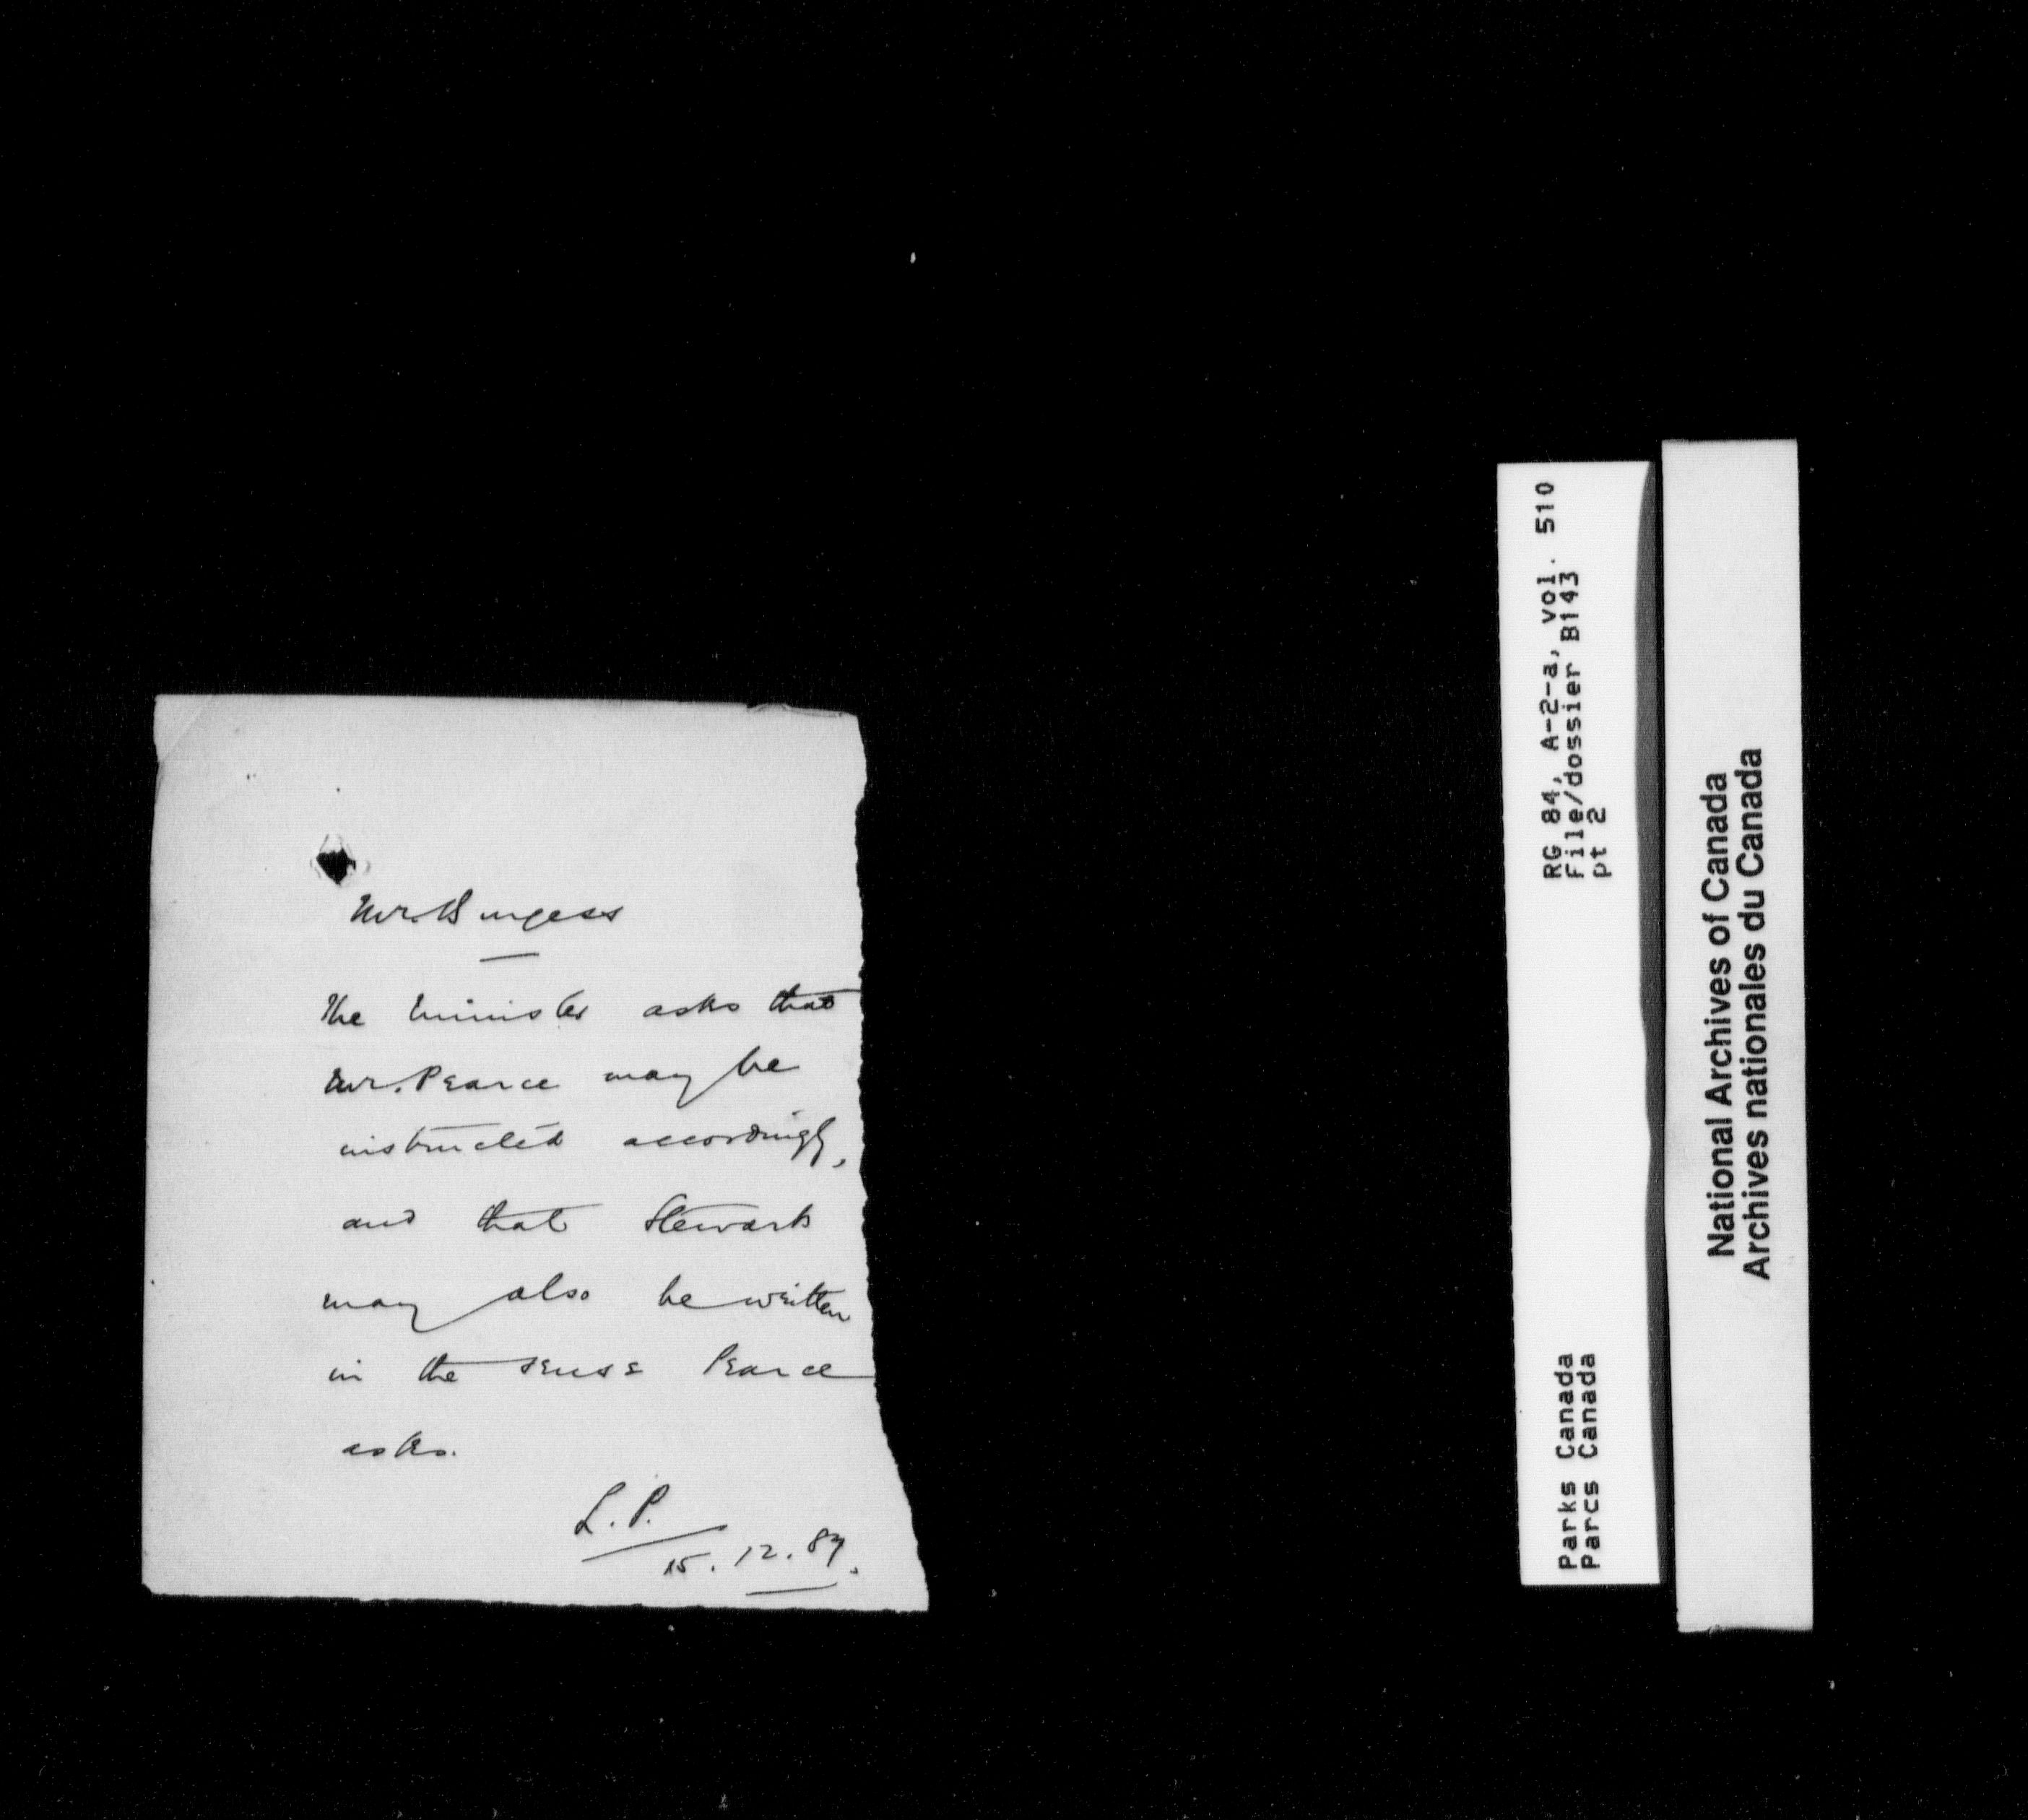 Mr. Burgess
The Minister asks that
Mr. Pearce may be
instructed accordingly,
and that Stewart
may also be written
in the sense Pearce
asks.
L. P.
15. 12. 89.
RG 84, A-2-a, vol. 510
File/dossier B143
pt 2
Parks Canada
Parcs Canada
National Archives of Canada
Archives nationales du Canada